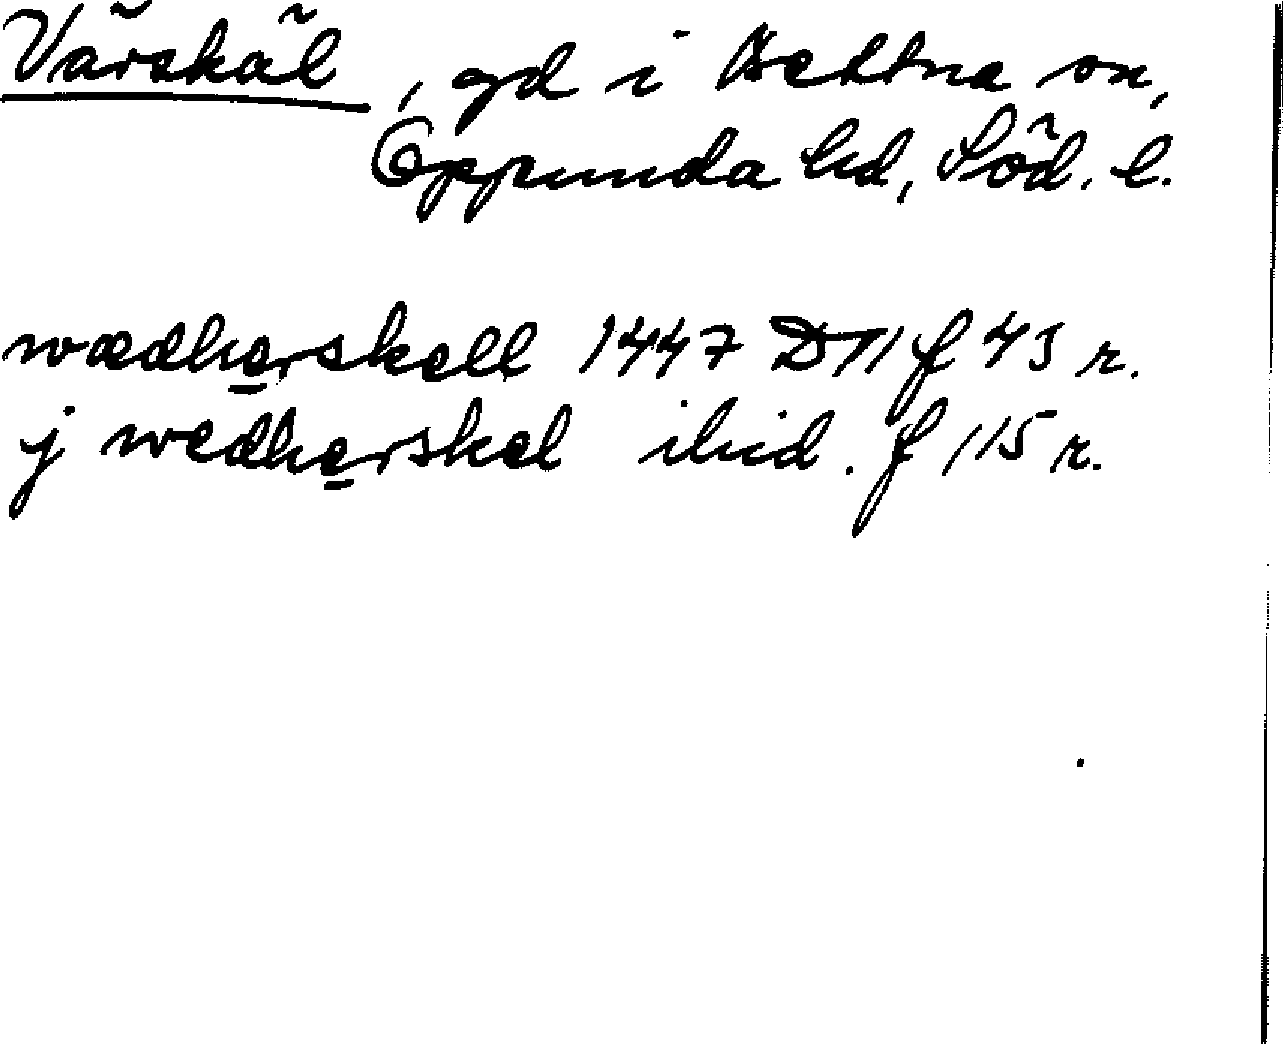 Värskäl, gd i Bettna sn,
Oppunda hd, Söd. l.
wædherskell 1447 D11 f 43 r.
j wedherskel ibid. f 115 r.